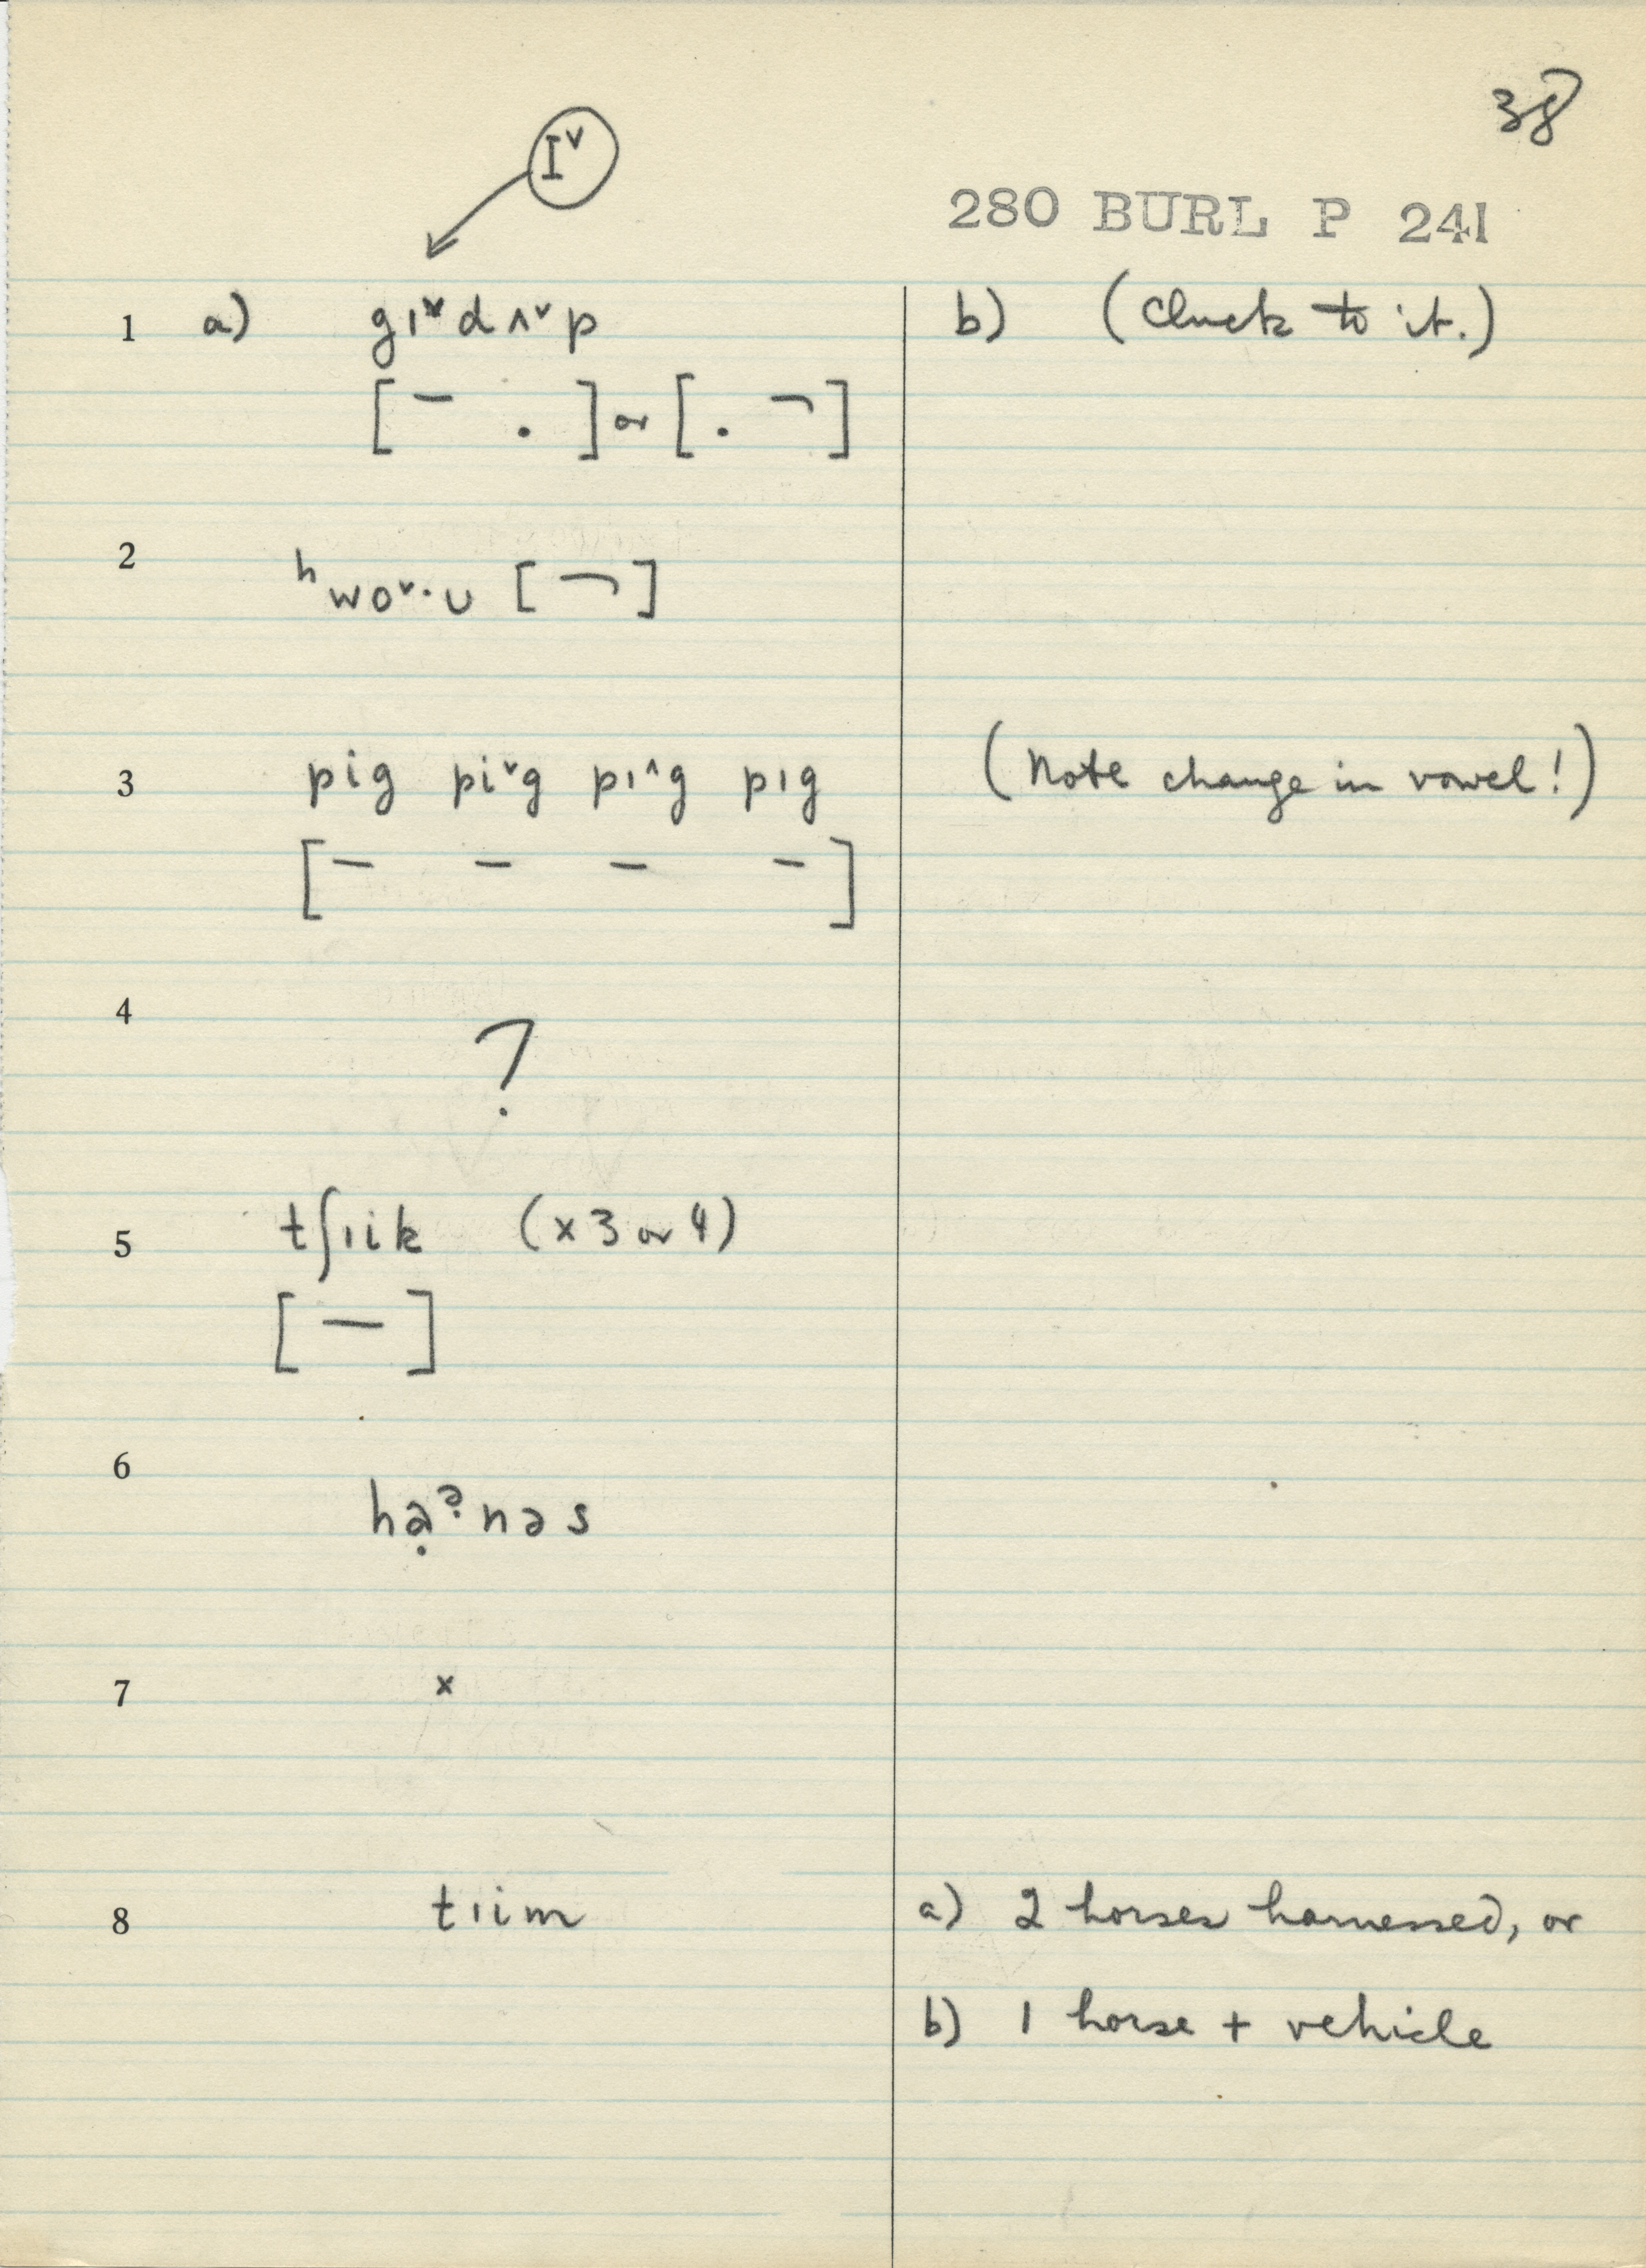 38
Iᵛ
280 BURL P 241
1 a) gɪᵛdʌᵛp b) (Cluck to it.)
[¯ .] or [. ¬]
2 ʰwoᵛ·ᴜ [¬]
3 pig piᵛg pɪ^g pɪg (Note change in vowel!)
[– – – –]
4 ?
5 tʃɪik (x 3 or 4)
[–]
6 hạᵊ̣nəs
7 x
8 tɪim a) 2 horses harnessed, or
b) 1 horse + vehicle